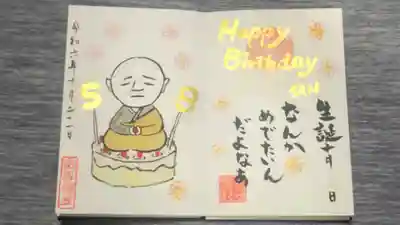 Happy
Birthday
生誕
なんか
めでたいん
だよなあ
5 8
令和六年十月二十一日